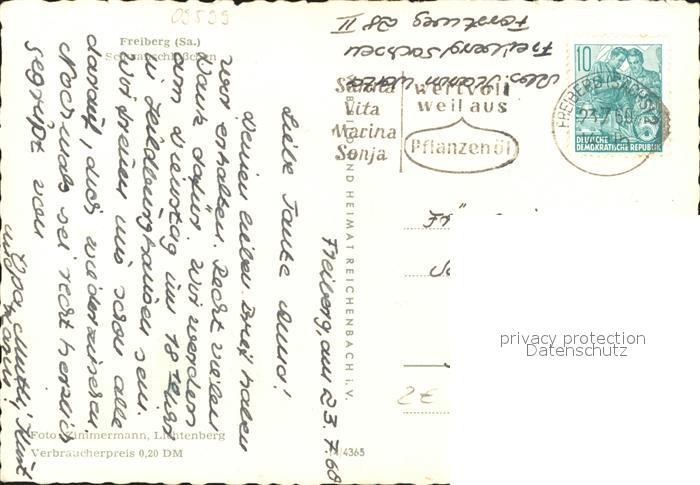 09599
Freiberg (Sa.)
Freiberg/Sachsen
Forstweg 28 II
Sanita
Vita
Marina
Sonja
wertvoll
weil aus
Pflanzenöl
FREIBERG (SACHS) 2
23.7.60
10
DEUTSCHE
DEMOKRATISCHE REPUBLIK
Freiberg, am 23.7.60
Liebe Tante Anna!
Deinen lieben Brief haben
wir erhalten. Recht vielen
Dank dafür. Wir werden
am Dienstag um 18 Uhr
in Hildburghausen sein.
Wir freuen uns schon alle
darauf, dich wiederzusehen.
Nochmals sei recht herzlich
gegrüßt von
Opa, Mutti, Kurt
und
BILD UND HEIMAT REICHENBACH i. V.
Foto: Zimmermann, Lichtenberg
Verbraucherpreis 0,20 DM
/4365
privacy protection
Datenschutz